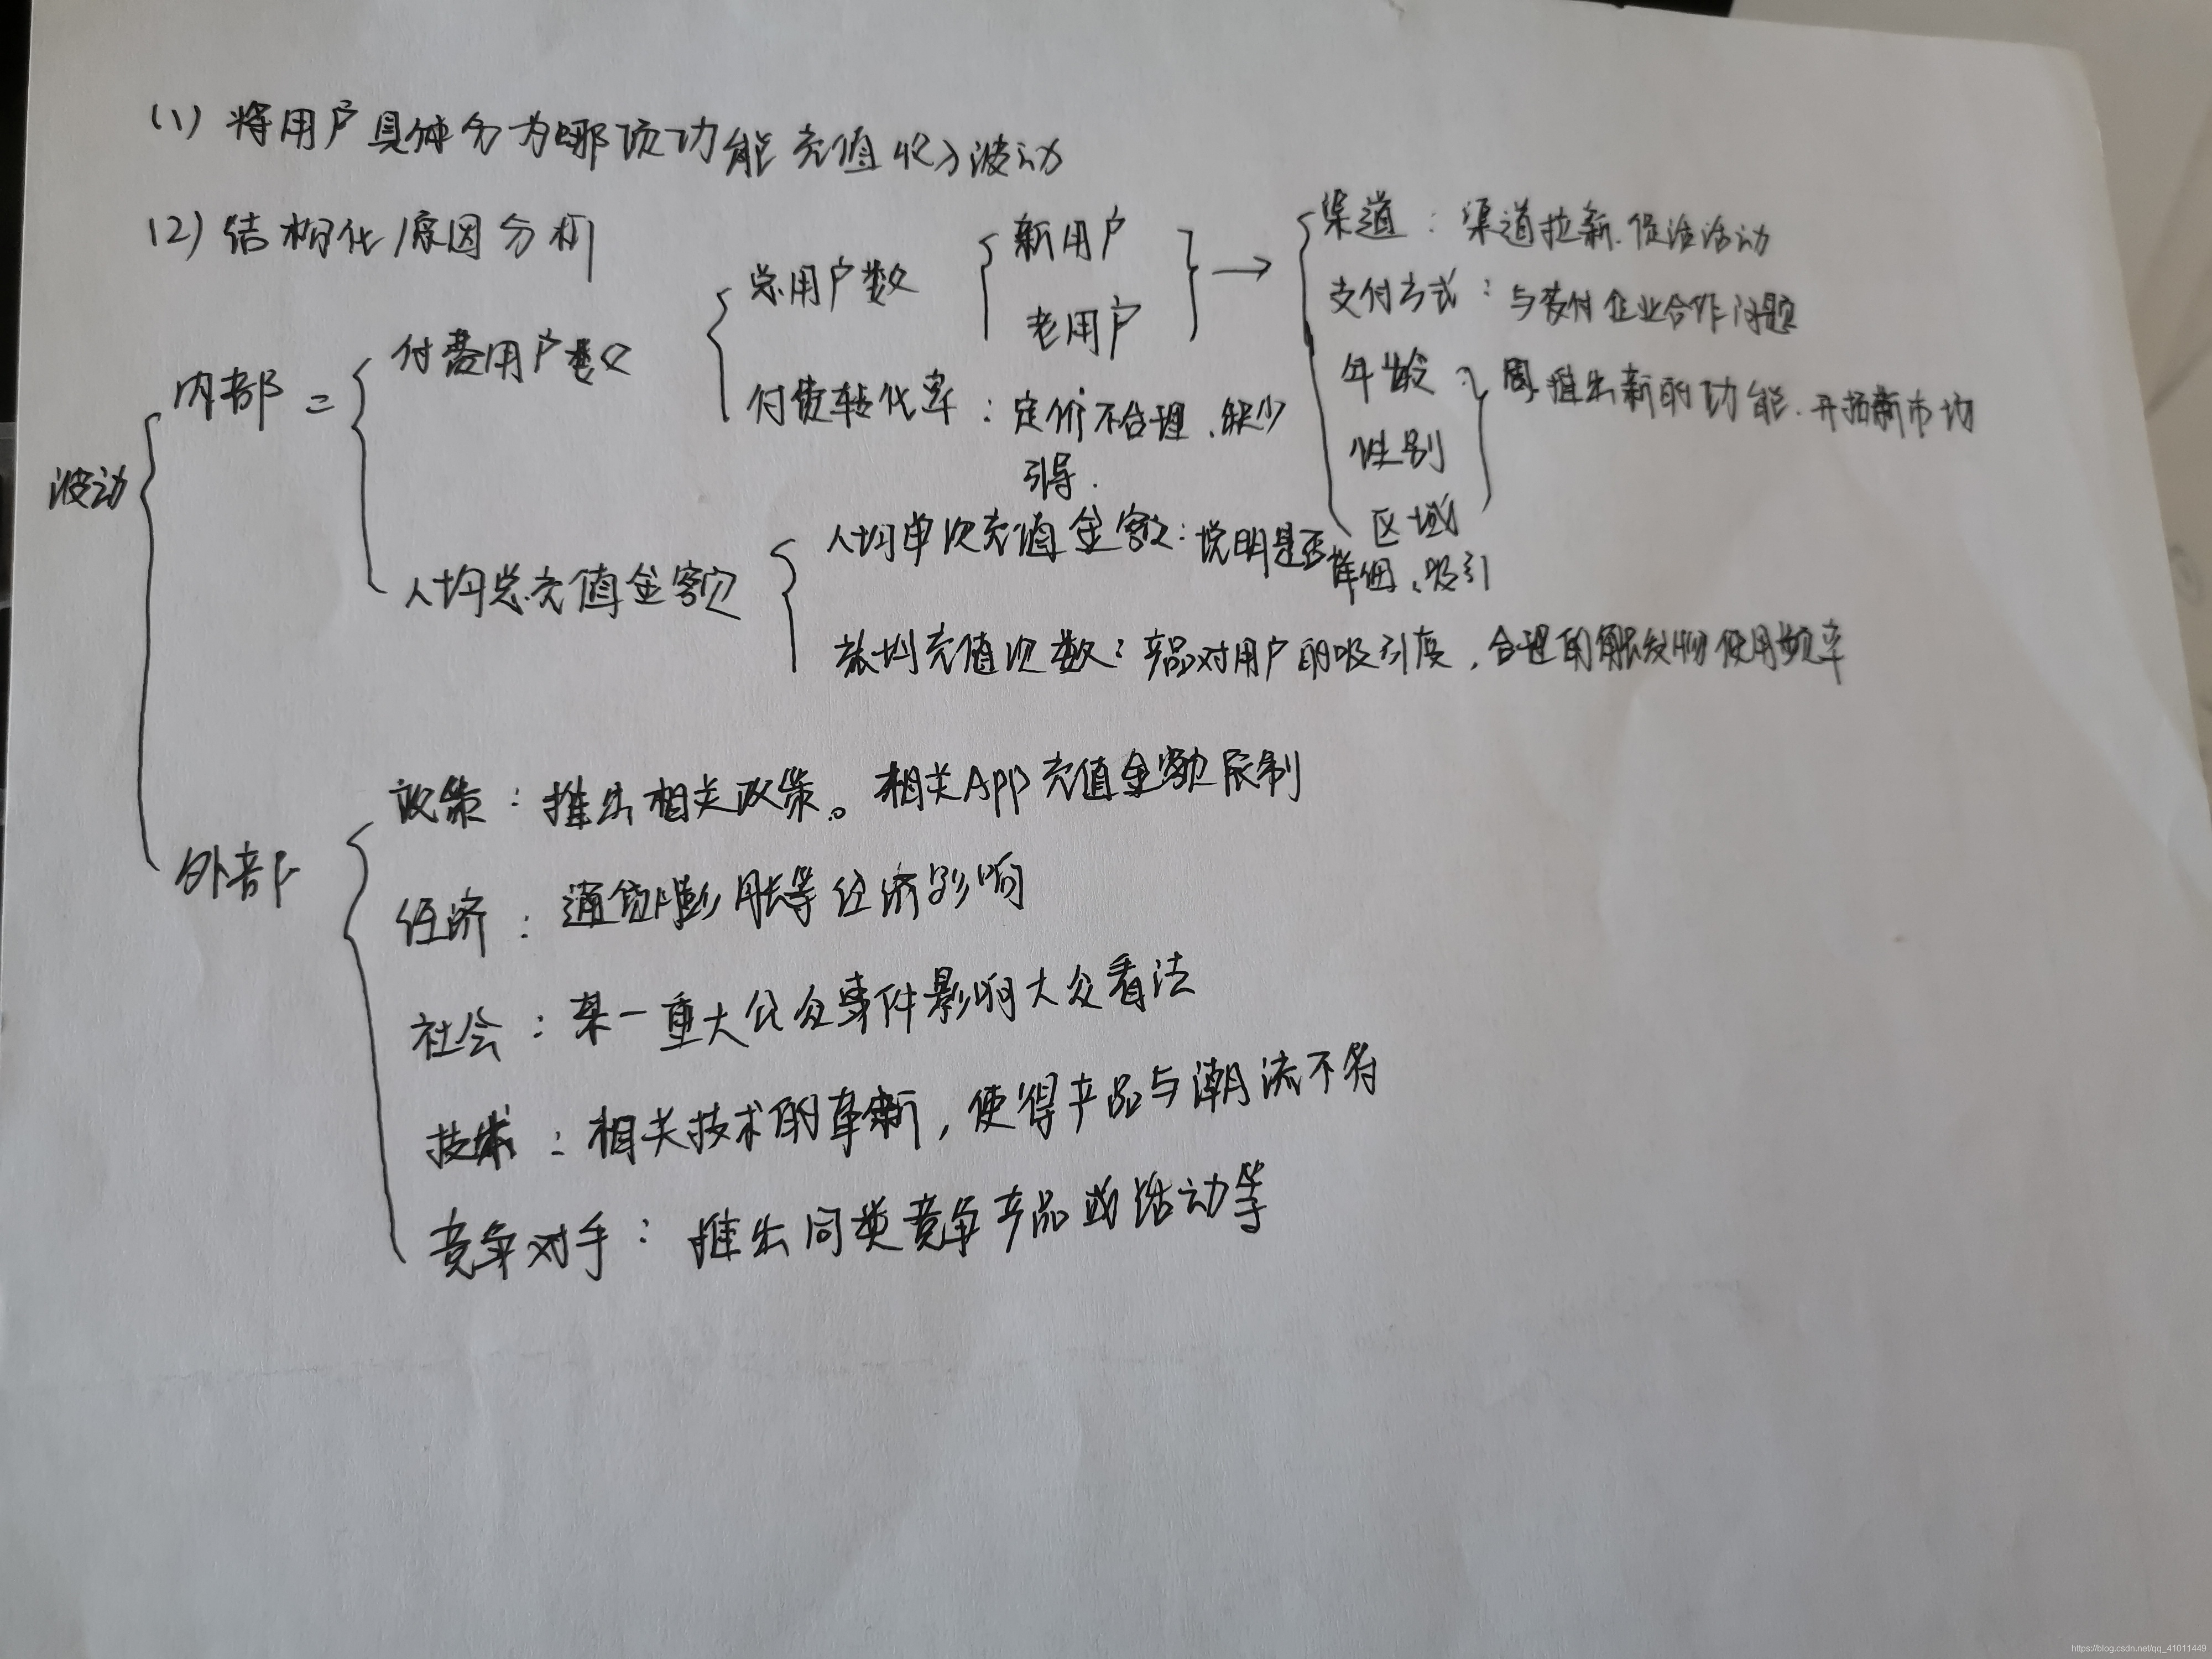 (1) 将用户具体分为哪项功能充值收入波动
(2) 结构化原因分析
波动
内部 =
付费用户数
总用户数
新用户
老用户
→
渠道：渠道拉新.促活活动
支付方式：与支付企业合作问题
年龄
性别
区域
推出新的功能.开拓新市场
付费转化率：定价不合理.缺少
引导.
人均总充值金额
人均单次充值金额：说明是否
详细.吸引
充值次数：产品对用户的吸引度，合理的触发物使用频率
外部
政策：推出相关政策。相关APP充值金额限制
经济：通货膨胀等经济影响
社会：某一重大公众事件影响大众看法
技术：相关技术的革新，使得产品与潮流不符
竞争对手：推出同类竞争产品或活动等
https://blog.csdn.net/qq_41011449